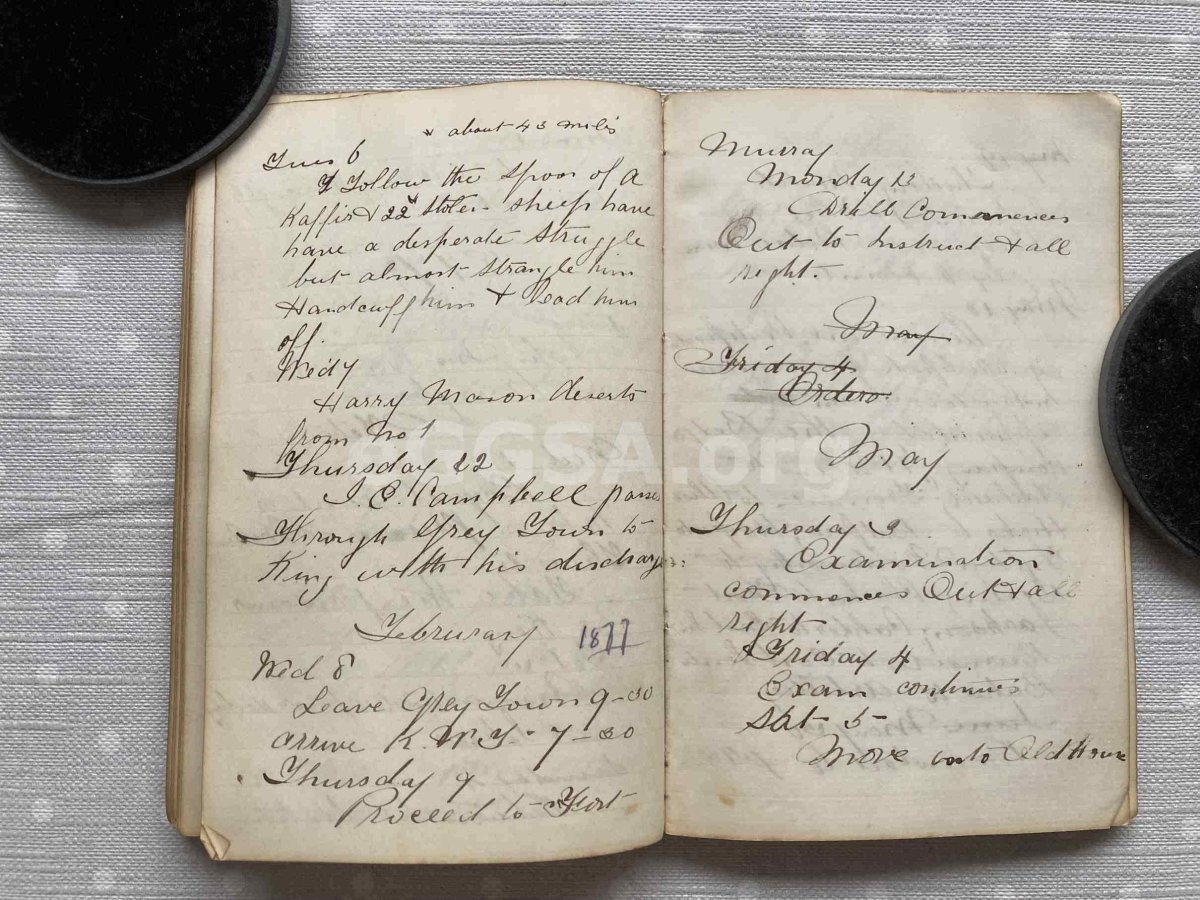 about 43 miles
Tues 6
I Follow the Spoor of a
Kaffir & 22 Stolen sheep have
have a desperate Struggle
but almost Strangle him
Handcuff him & lead him
off.
Wedy
Harry Mason deserts
from No 1
Thursday 22
J. C. Campbell passes
Through Grey Town to
King with his discharge
February 1877
Wed 8
Leave Grey Town 9-30
arrive K.W.T. 7-30
Thursday 9
Proceed to Fort
Murray
Monday 12
Drill Commences
Out to Instruct & all
right.
May
Friday 4
Orders
May
Thursday 3
Examination
commences Out & all
right
Friday 4
Exam continues
Sat 5
Move into Old House
ECGSA.org